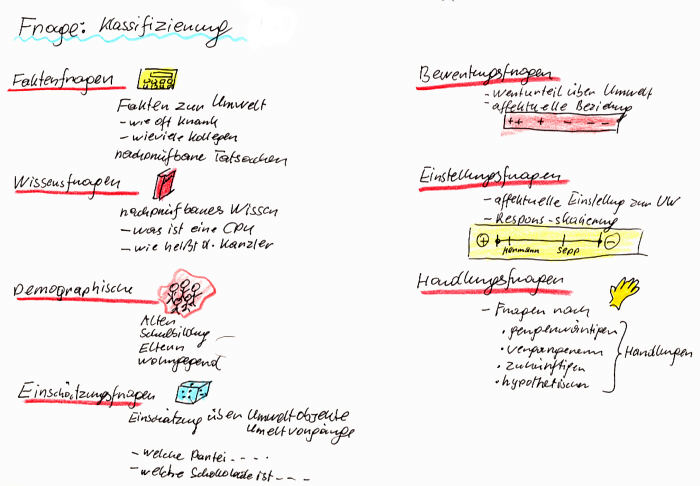 Frage: Klassifizierung
Faktenfragen
Fakten zur Umwelt
- wie oft krank
- wieviele Kollegen
nachprüfbare Tatsachen
Wissensfragen
nachprüfbares Wissen
- was ist eine CPU
- wie heißt d. Kanzler
Demographische
Alter
Schulbildung
Eltern
Wohngegend
Einschätzungsfragen
Einschätzung über Umweltobjekte
Umweltvorgänge
- welche Partei - - - -
- welche Schokolade ist - - -
Bewertungsfragen
- Werturteil über Umwelt
- affektuelle Beziehung
++ + - - -
Einstellungsfragen
- affektuelle Einstellung zur UW
- Respons-Skalierung
+ -
Hermann Sepp
Handlungsfragen
- Fragen nach
• gegenwärtigen
• vergangenen
• zukünftigen
• hypothetischen
Handlungen